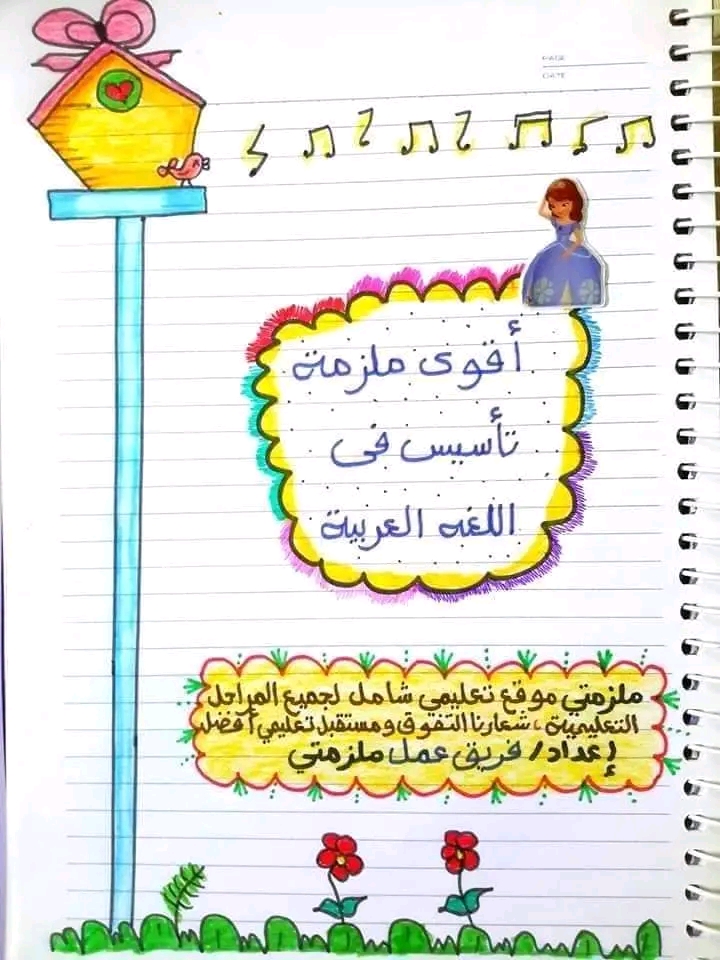 PAGE
DATE
أقوى ملزمة
تأسيس فى
اللغه العربية
ملزمتي موقع تعليمي شامل لجميع المراحل
التعليمية ، شعارنا التفوق ومستقبل تعليمي أفضل
إعداد/ فريق عمل ملزمتي